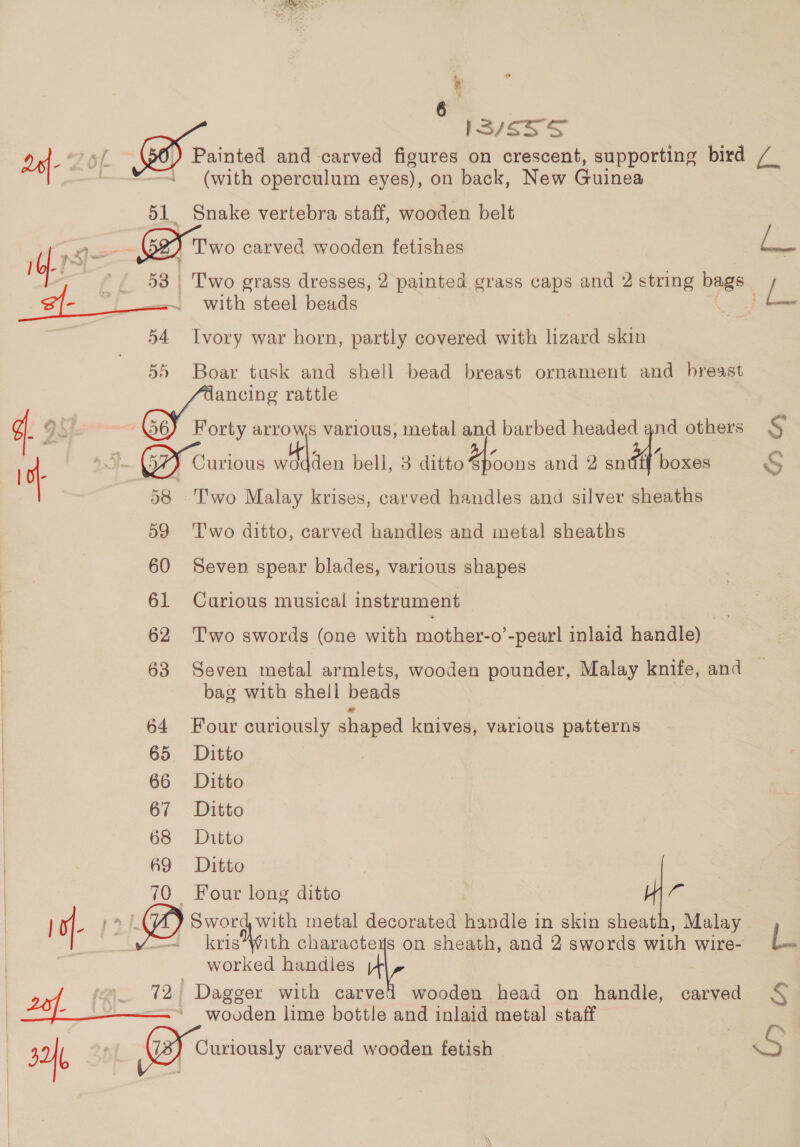 6
13/SSS
20/- 50 Painted and carved figures on crescent, supporting bird L
(with operculum eyes), on back, New Guinea
51 Snake vertebra staff, wooden belt
16/- 52 Two carved wooden fetishes L
53 Two grass dresses, 2 painted grass caps and 2 string bags L
with steel beads
54 Ivory war horn, partly covered with lizard skin
55 Boar tusk and shell bead breast ornament and breast
dancing rattle
56 Forty arrows various, metal and barbed headed and others S
10/- 57 Curious wodden bell, 3 ditto spoons and 2 snuff boxes S
58 Two Malay krises, carved handles and silver sheaths
59 Two ditto, carved handles and metal sheaths
60 Seven spear blades, various shapes
61 Curious musical instrument
62 Two swords (one with mother-o'-pearl inlaid handle)
63 Seven metal armlets, wooden pounder, Malay knife, and
bag with shell beads
64 Four curiously shaped knives, various patterns
65 Ditto
66 Ditto
67 Ditto
68 Ditto
69 Ditto
70 Four long ditto
10/- 71 Sword with metal decorated handle in skin sheath, Malay
kris with characters on sheath, and 2 swords with wire- L
worked handles
20/- 72 Dagger with carved wooden head on handle, carved S
wooden lime bottle and inlaid metal staff
32/6 73 Curiously carved wooden fetish S